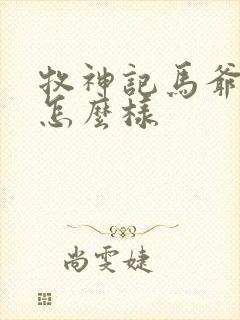 牧神記馬爺
怎麼樣
尚雯婕